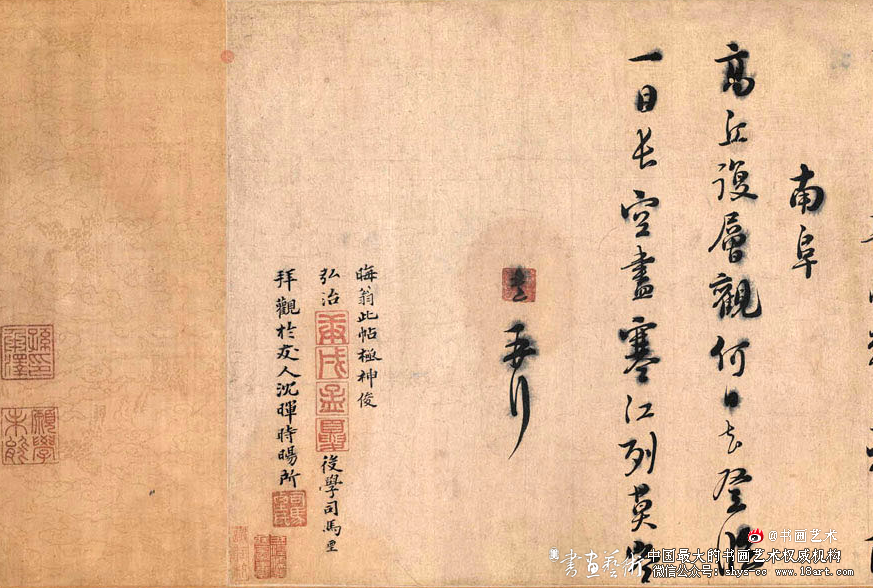 南阜
高丘複層觀何日去登臨
一目長空盡寒江列莫岑
晦翁此帖極神俊
弘治庚戌孟夏後學司馬垔
拜觀於友人沈暉時暘所
願學未能
@书画艺术
書畫藝術
中国最大的书画艺术权威机构
微信公众号：shys-cc www.18art.com